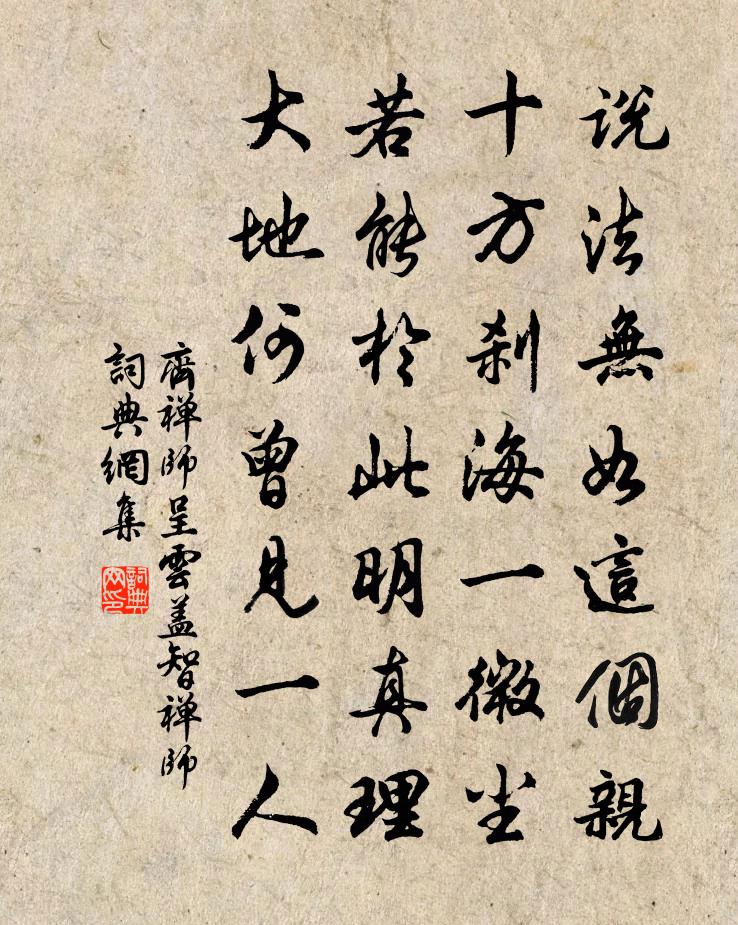 説法無如這個親
十方刹海一微塵
若能於此明真理
大地何曾見一人
齊禅師呈雲盖智禅師
詞典網集
詞典
網印